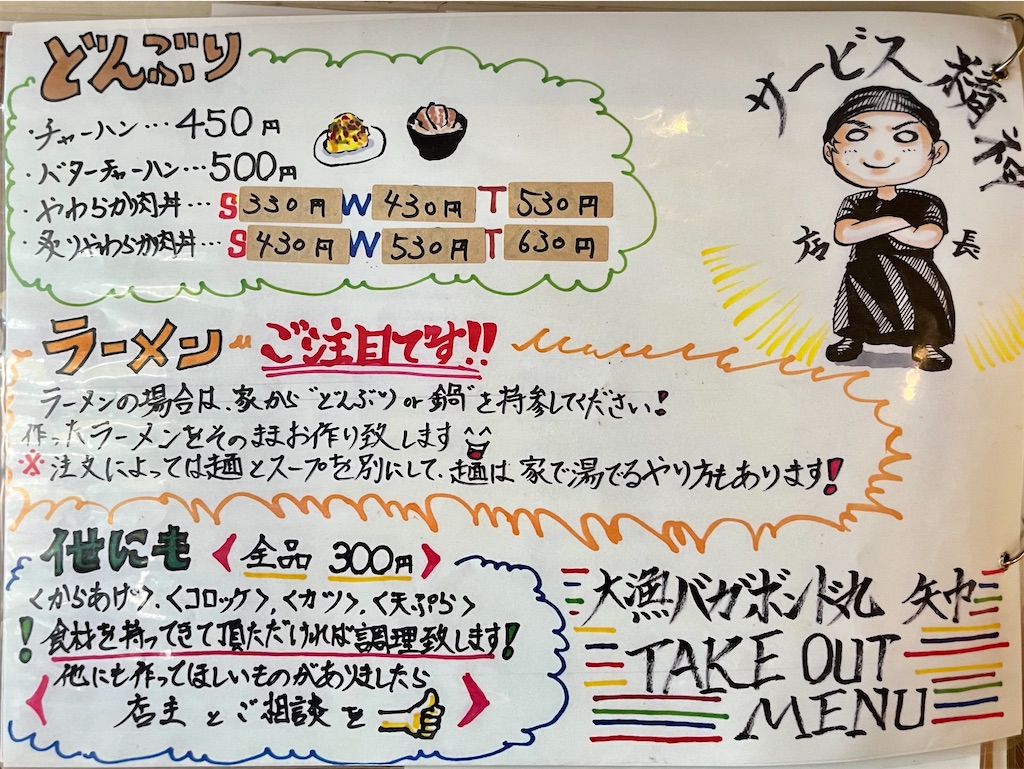 どんぶり
・チャーハン…450円
・バターチャーハン…500円
・やわらか肉丼…S330円W430円T530円
・炙りやわらか肉丼…S430円W530円T630円
ラーメン ご注目です!!
ラーメンの場合は、家から"どんぶりor鍋"を持参してください!
作ったラーメンをそのままお作り致します
※注文によっては麺とスープを別にして、麺は家で湯でるやり方もあります!
他にも 〈全品 300円〉
〈からあげ〉、〈コロッケ〉、〈カツ〉、〈天ぷら〉
!食材を持ってきて頂ただければ調理致します!
〈他にも作ってほしいものがありましたら
店主とご相談を〉
サービス精神
店長
大漁バガボンド丸 矢巾
TAKE OUT
MENU